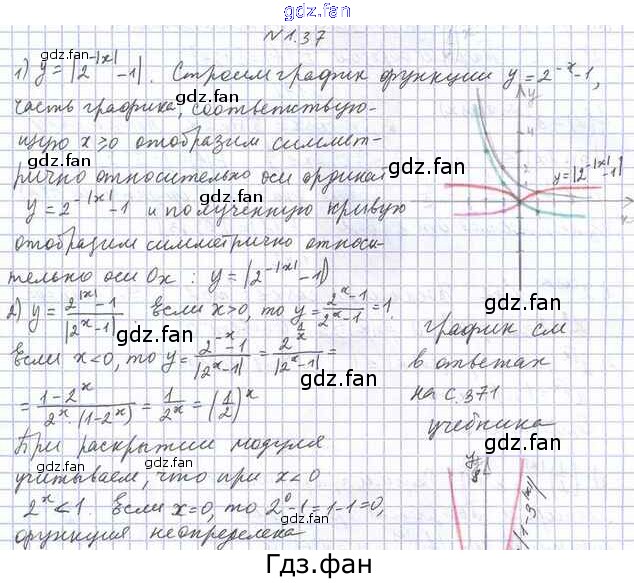 gdz.fan
№1.37
gdz.fan gdz.fan
1) y = |2^{-|x|} - 1|. Строим график функции y = 2^{-x} - 1,
часть графика, соответствую-
щую x ⩾ 0 отобразим симмет-
gdz.fan gdz.fan
рично относительно оси ординат
y = 2^{-|x|} - 1 и полученную кривую
gdz.fan gdz.fan
отобразим симметрично относи-
тельно оси Ox : y = |2^{-|x|} - 1|
gdz.fan gdz.fan
y
4
y = |2^{-|x|} - 1|
0
x
2) y = \frac{2^{|x|} - 1}{|2^x - 1|}. Если x > 0, то y = \frac{2^x - 1}{2^x - 1} = 1.
Если x < 0, то y = \frac{2^{-x} - 1}{|2^x - 1|} = \frac{\frac{1}{2^x} - 1}{|2^x - 1|} =
gdz.fan gdz.fan
= \frac{1 - 2^x}{2^x · (1 - 2^x)} = \frac{1}{2^x} = (\frac{1}{2})^x
график см
в ответах
на с. 371
учебника
При раскрытии модуля
gdz.fan gdz.fan
учитываем, что при x < 0
2^x < 1. Если x = 0, то 2^0 - 1 = 1 - 1 = 0,
функция неопределена
gdz.fan gdz.fan
y
8
Гдз.фан